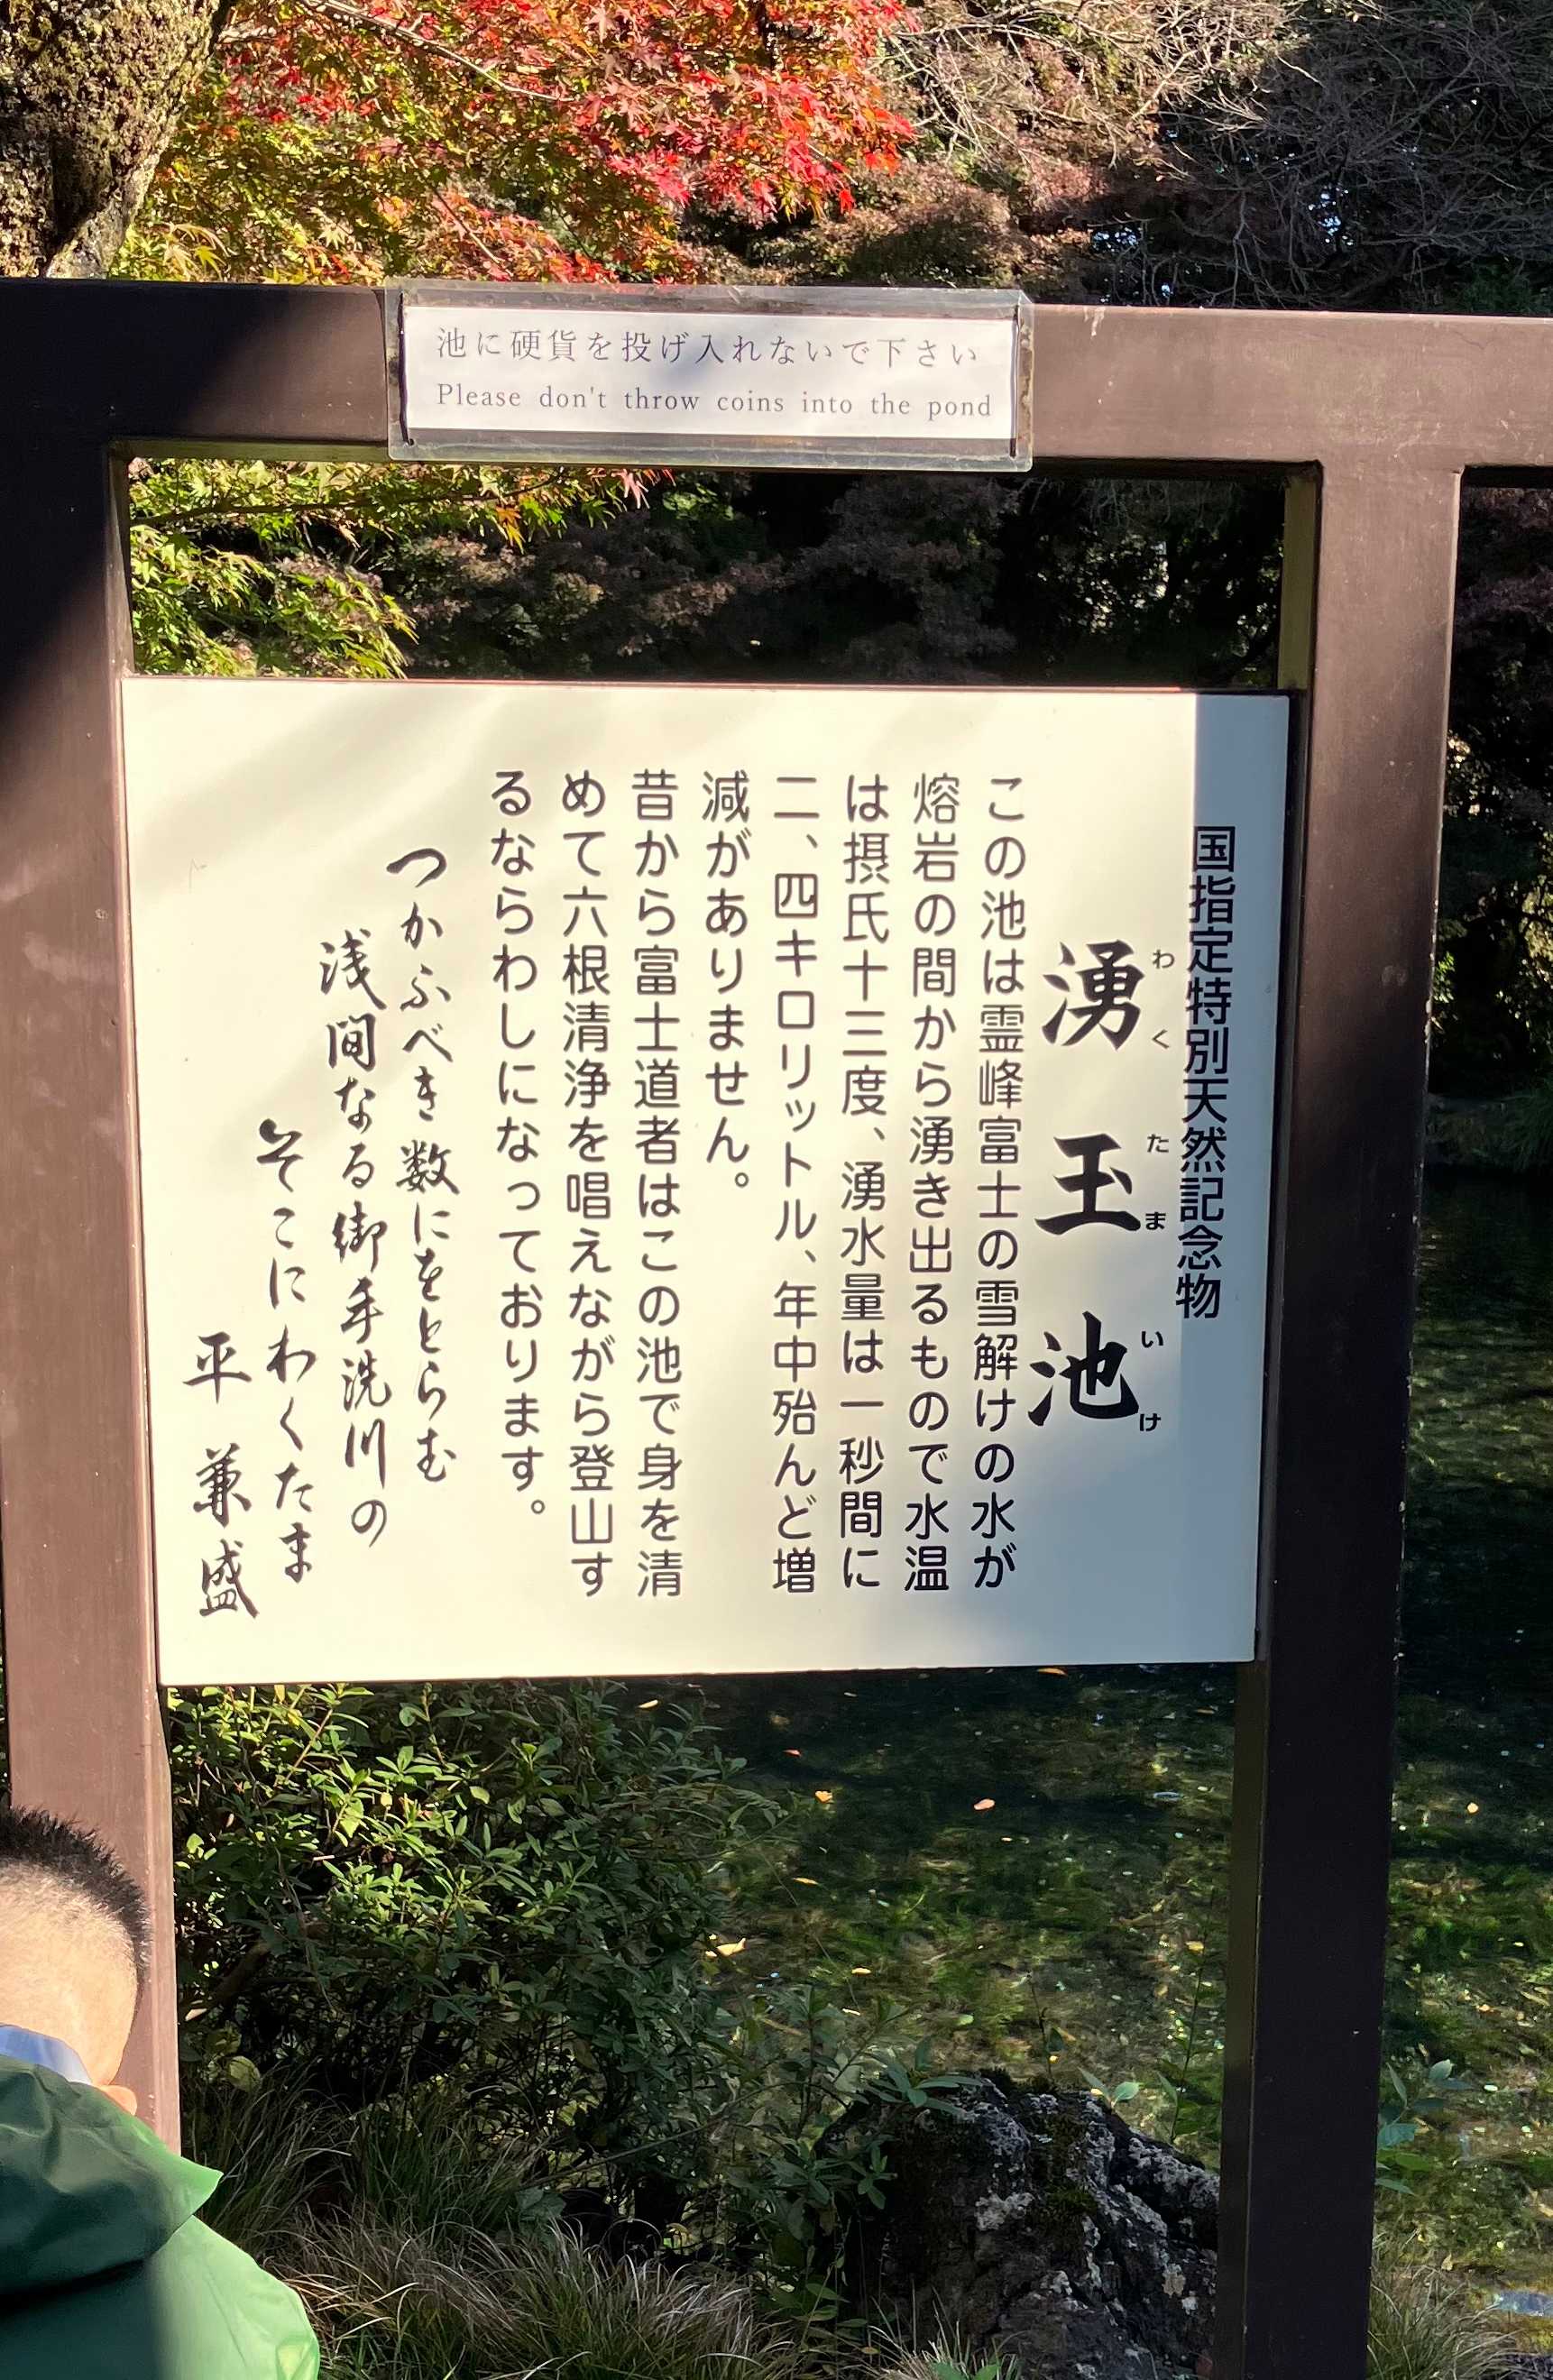 池に硬貨を投げ入れないで下さい
Please don't throw coins into the pond
国指定特別天然記念物
湧玉池
わくたまいけ
この池は霊峰富士の雪解けの水が
熔岩の間から湧き出るもので水温
は摂氏十三度、湧水量は一秒間に
二、四キロリットル、年中殆んど増
減がありません。
昔から富士道者はこの池で身を清
めて六根清浄を唱えながら登山す
るならわしになっております。
つかふべき数にをとらむ
浅間なる御手洗川の
そこにわくたま
平兼盛